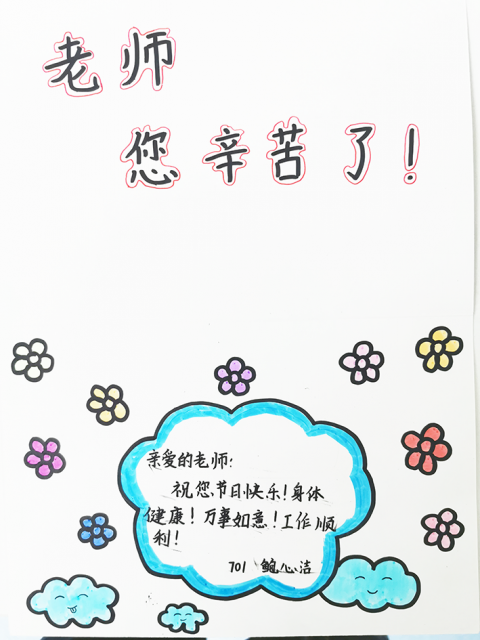 老师
您辛苦了！
亲爱的老师：
祝您，节日快乐！身体
健康！万事如意！工作顺
利！
701 鲍心洁